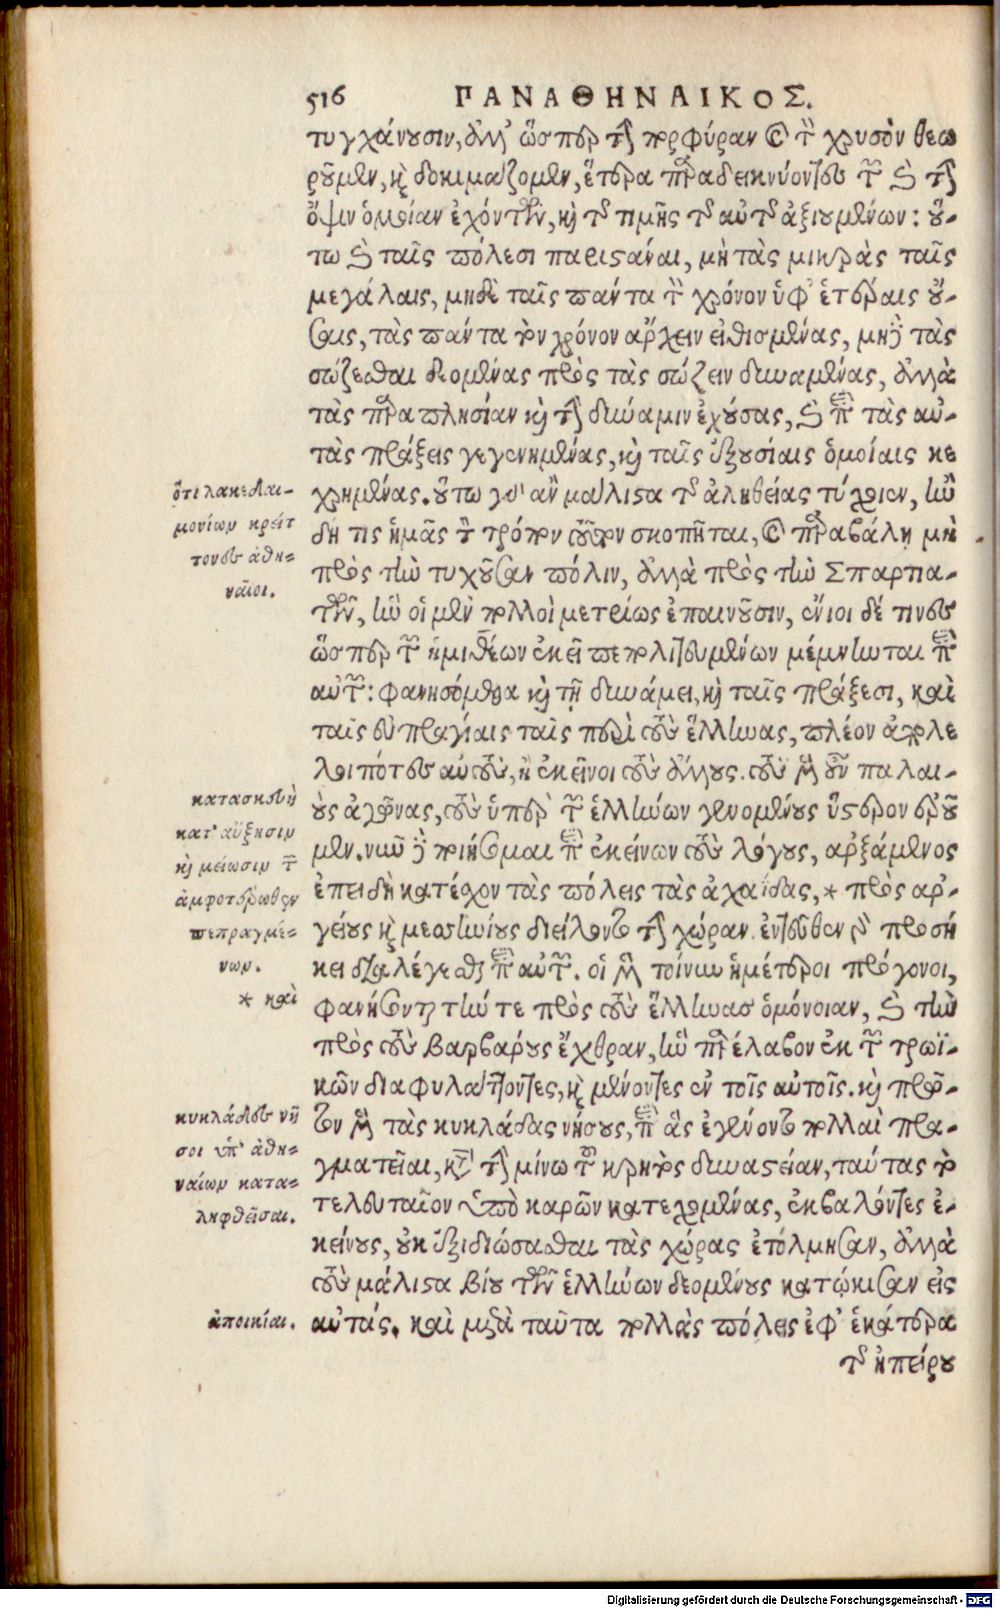 516 ΠΑΝΑΘΗΝΑΙΚΟΣ.
τυγχάνουσιν, ἀλλ' ὥσπερ τὴν πορφύραν καὶ τὸν χρυσὸν θεω
ροῦμεν, καὶ δοκιμάζομεν, ἕτερα παραδεικνύοντες τῶν καὶ τὴν
ὄψιν ὁμοίαν ἐχόντων, καὶ τῆς τιμῆς τῆς αὐτῆς ἀξιουμένων: οὕ-
τω καὶ ταῖς πόλεσι παριστάναι, μὴ τὰς μικρὰς ταῖς
μεγάλαις, μηδὲ ταῖς πάντα τὸν χρόνον ὑφ' ἑτέραις οὔ-
σαις, τὰς πάντα τὸν χρόνον ἄρχειν εἰθισμένας, μηδὲ τὰς
σώζεσθαι δεομένας πρὸς τὰς σώζειν δυναμένας, ἀλλὰ
τὰς παραπλησίαν καὶ τὴν δύναμιν ἐχούσας, καὶ περὶ τὰς αὐ-
τὰς πράξεις γεγενημένας, καὶ ταῖς ἐξουσίαις ὁμοίαις κε
χρημένας. οὕτω γὰρ ἂν μάλιστα τῆς ἀληθείας τύχοιεν, ἢν
δή τις ἡμᾶς τὸν τρόπον τοῦτον σκοπῆται, καὶ παραβάλῃ μὴ
πρὸς τὴν τυχοῦσαν πόλιν, ἀλλὰ πρὸς τὴν Σπαρτια-
τῶν, ἣν οἱ μὲν πολλοὶ μετρίως ἐπαινοῦσιν, ἔνιοι δέ τινες
ὥσπερ τῶν ἡμιθέων ἐκεῖ πεπολιτευμένων μέμνηνται περὶ
αὐτῶν: φανησόμεθα καὶ τῇ δυνάμει, καὶ ταῖς πράξεσι, καὶ
ταῖς εὐπραγίαις ταῖς περὶ τοὺς ἕλληνας, πλέον ἀπολε
λοιπότες αὐτοὺς, ἢ ἐκεῖνοι τοὺς ἄλλους. τοὺς μὲν οὖν παλαι-
οὺς ἀγῶνας, τοὺς ὑπὲρ τῶν ἑλλήνων γενομένους ὕστερον ἐροῦ
μεν. νῦν δὲ ποιήσομαι περὶ ἐκείνων τοὺς λόγους, ἀρξάμενος
ἐπειδὴ κατέσχον τὰς πόλεις τὰς ἀχαΐδας, * πρὸς ἀρ-
γείους καὶ μεσσηνίους διείλοντο τὴν χώραν. ἐντεῦθεν γὰρ προσή
κει διαλέγεσθαι περὶ αὐτῶν. οἱ μὲν τοίνυν ἡμέτεροι πρόγονοι,
φανήσονται τήν τε πρὸς τοὺς ἕλληνας ὁμόνοιαν, καὶ τὴν
πρὸς τοὺς βαρβάρους ἔχθραν, ἣν παρέλαβον ἐκ τῶν τρωϊ-
κῶν διαφυλάττοντες, καὶ μένοντες ἐν τοῖς αὐτοῖς. καὶ πρῶ-
τον μὲν τὰς κυκλάδας νήσους, περὶ ἃς ἐγένοντο πολλαὶ πρα-
γματεῖαι, κατὰ τὴν μίνω τοῦ κρητὸς δυναστείαν, ταύτας τὸ
τελευταῖον ὑπὸ καρῶν κατεχομένας, ἐκβαλόντες ἐ-
κείνους, οὐκ ἐξιδιώσασθαι τὰς χώρας ἐτόλμησαν, ἀλλὰ
τοὺς μάλιστα βίου τῶν ἑλλήνων δεομένους κατῴκισαν εἰς
αὐτάς. καὶ μετὰ ταῦτα πολλὰς πόλεις ἐφ' ἑκάτερα
τῆς ἠπείρου
ὅτι λακεδαι-
μονίων κρείτ
τονες ἀθη-
ναῖοι.
κατασκευὴ
κατ' αὔξησιν
καὶ μείωσιν τῶν
ἀμφοτέρωθεν
πεπραγμέ-
νων.
* καὶ
κυκλάδες νῆ
σοι ὑπ' ἀθη-
ναίων κατα-
ληφθεῖσαι.
ἀποικίαι.
Digitalisierung gefördert durch die Deutsche Forschungsgemeinschaft - DFG